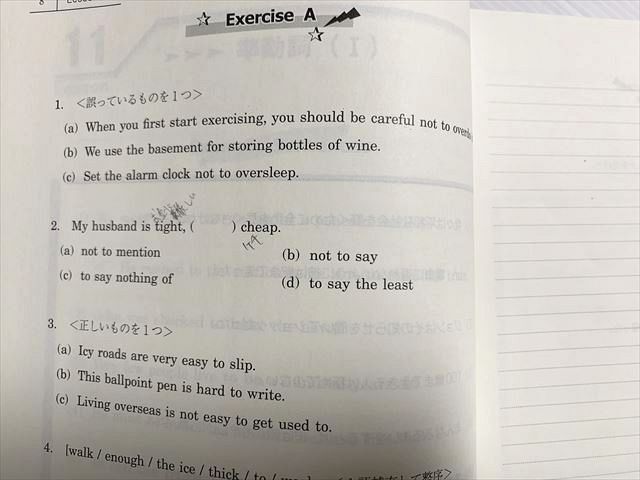 8
☆ Exercise A
☆
1. ＜誤っているものを１つ＞
(a) When you first start exercising, you should be careful not to
(b) We use the basement for storing bottles of wine.
(c) Set the alarm clock not to oversleep.
2. My husband is tight, ( ) cheap.
ケチ
(a) not to mention
(b) not to say
(c) to say nothing of
(d) to say the least
3. ＜正しいものを１つ＞
(a) Icy roads are very easy to slip.
(b) This ballpoint pen is hard to write.
(c) Living overseas is not easy to get used to.
4. [walk / enough / the ice / thick / to